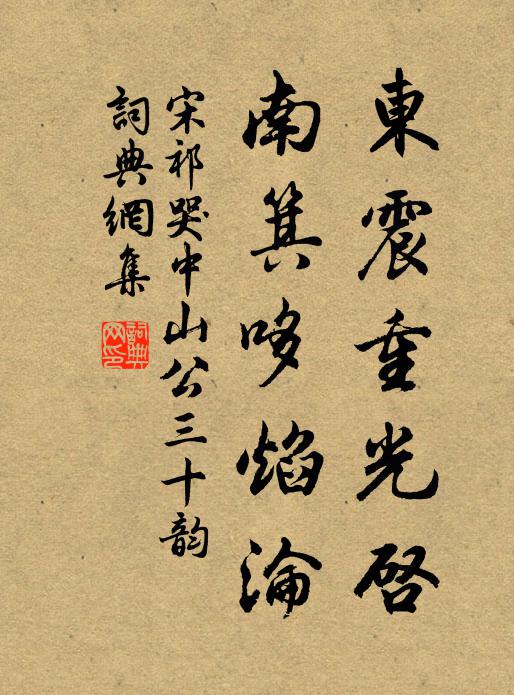 東震重光啓
南箕哆焰淪
宋祁哭中山公三十韵
詞典網集
詞典
网印